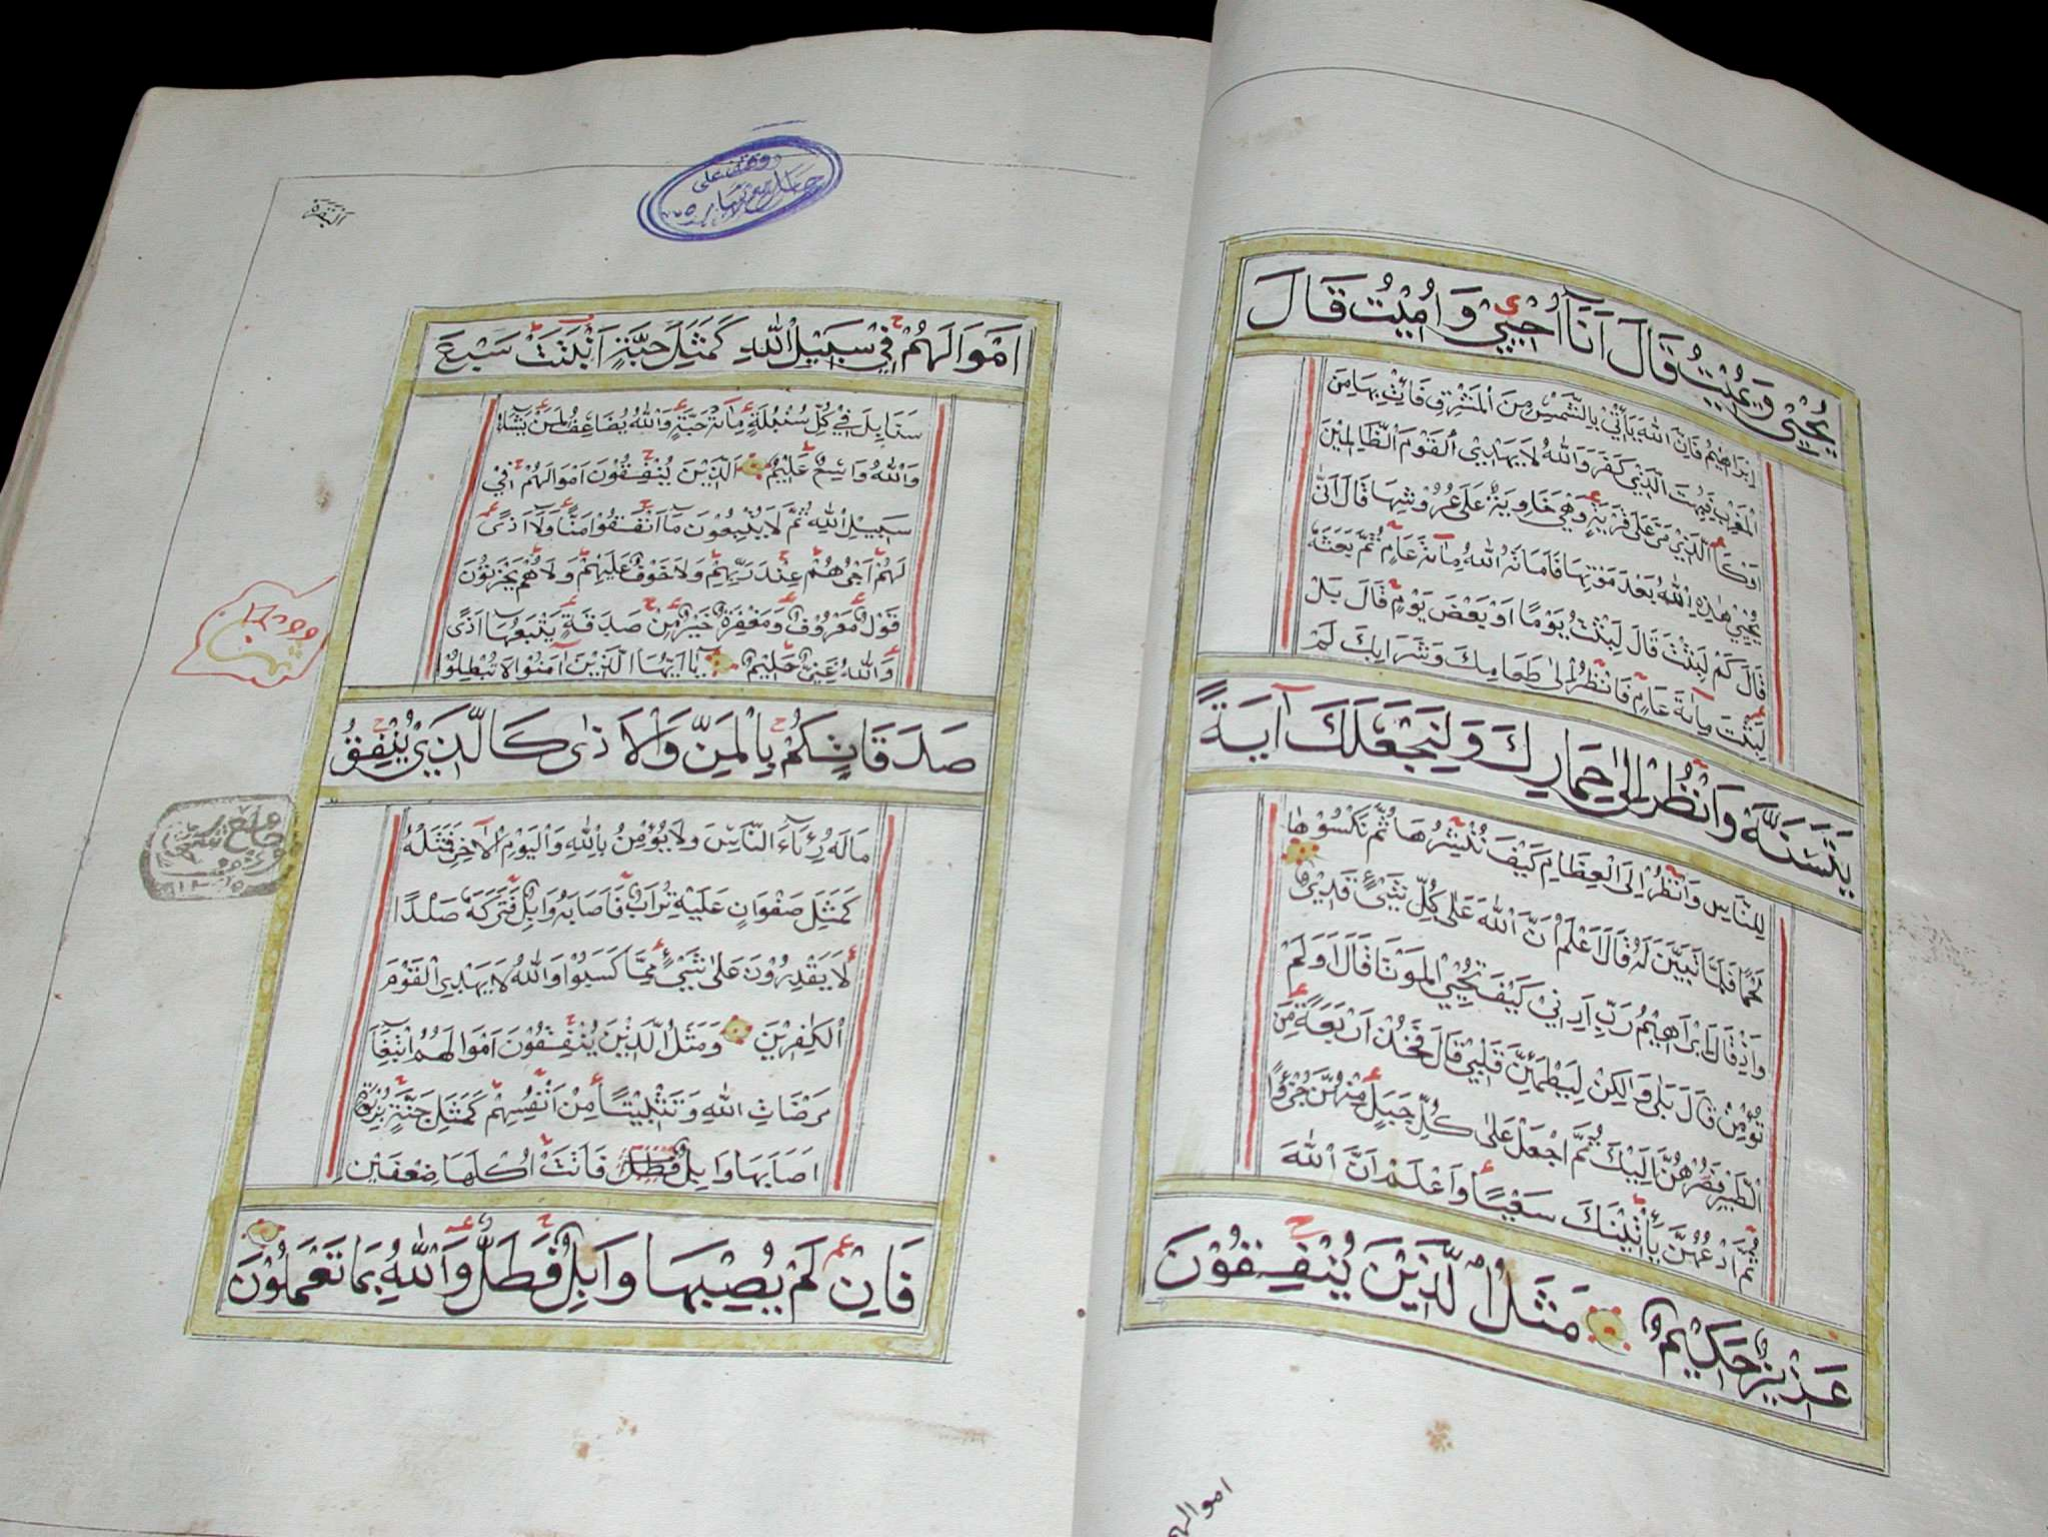 يُحْيِيْ وَيُمِيْتُ قَالَ اَنَاۤ اُحْيِيْ وَاُمِيْتُ قَالَ
اِبْرَاهِيْمُ فَاِنَّ اللهَ يَأْتِيْ بِالشَّمْسِ مِنَ الْمَشْرِقِ فَأْتِ بِهَا مِنَ
الْمَغْرِبِ فَبُهِتَ الَّذِيْ كَفَرَ وَاللهُ لَا يَهْدِيْ الْقَوْمَ الظَّالِمِيْنَ
اَوْكَا الَّذِيْ مَرَّ عَلَى قَرْيَةٍ وَّهِيَ خَاوِيَةٌ عَلَى عُرُوْشِهَا قَالَ اَنّٰى
يُحْيِيْ هٰذِهِ اللهُ بَعْدَ مَوْتِهَا فَاَمَاتَهُ اللهُ مِائَةَ عَامٍ ثُمَّ بَعَثَهُ
قَالَ كَمْ لَبِثْتَ قَالَ لَبِثْتُ يَوْمًا اَوْ بَعْضَ يَوْمٍ قَالَ بَلْ
لَبِثْتَ مِائَةَ عَامٍ فَانْظُرْ اِلٰى طَعَامِكَ وَشَرَابِكَ لَمْ
يَتَسَنَّهْ وَانْظُرْ اِلٰى حِمَارِكَ وَلِنَجْعَلَكَ اٰيَةً
لِلنَّاسِ وَانْظُرْ اِلَى الْعِظَامِ كَيْفَ نُنْشِزُهَا ثُمَّ نَكْسُوْهَا
لَحْمًا فَلَمَّا تَبَيَّنَ لَهُ قَالَ اَعْلَمُ اَنَّ اللهَ عَلٰى كُلِّ شَيْءٍ قَدِيْرٌ
وَاِذْ قَالَ اِبْرَاهِيْمُ رَبِّ اَرِنِيْ كَيْفَ تُحْيِي الْمَوْتَا قَالَ اَوَلَمْ
تُؤْمِنْ قَالَ بَلٰى وَلٰكِنْ لِيَطْمَئِنَّ قَلْبِيْ قَالَ فَخُذْ اَرْبَعَةً مِنَ
الطَّيْرِ فَصُرْهُنَّ اِلَيْكَ ثُمَّ اجْعَلْ عَلٰى كُلِّ جَبَلٍ مِنْهُنَّ جُزْءًا
ثُمَّ ادْعُهُنَّ يَأْتِيْنَكَ سَعْيًا وَاعْلَمْ اَنَّ اللهَ
عَزِيْزٌ حَكِيْمٌ مَثَلُ الَّذِيْنَ يُنْفِقُوْنَ
اموالهم
البقرة
وقف على
اَمْوَالَهُمْ فِيْ سَبِيْلِ اللهِ كَمَثَلِ حَبَّةٍ اَنْبَتَتْ سَبْعَ
سَنَابِلَ فِيْ كُلِّ سُنْبُلَةٍ مِائَةُ حَبَّةٍ وَاللهُ يُضَاعِفُ لِمَنْ يَّشَاءُ
وَاللهُ وَاسِعٌ عَلِيْمٌ الَّذِيْنَ يُنْفِقُوْنَ اَمْوَالَهُمْ فِيْ
سَبِيْلِ اللهِ ثُمَّ لَا يُتْبِعُوْنَ مَا اَنْفَقُوْا مَنًّا وَّلَا اَذًى
لَهُمْ اَجْرُهُمْ عِنْدَ رَبِّهِمْ وَلَا خَوْفٌ عَلَيْهِمْ وَلَا هُمْ يَحْزَنُوْنَ
قَوْلٌ مَعْرُوْفٌ وَمَغْفِرَةٌ خَيْرٌ مِنْ صَدَقَةٍ يَتْبَعُهَا اَذًى
وَاللهُ غَنِيٌّ حَلِيْمٌ يَا اَيُّهَا الَّذِيْنَ اٰمَنُوْا لَا تُبْطِلُوْا
صَدَقَاتِكُمْ بِالْمَنِّ وَالْاَذٰى كَالَّذِيْ يُنْفِقُ
مَالَهُ رِئَاءَ النَّاسِ وَلَا يُؤْمِنُ بِاللهِ وَالْيَوْمِ الْاٰخِرِ فَمَثَلُهُ
كَمَثَلِ صَفْوَانٍ عَلَيْهِ تُرَابٌ فَاَصَابَهُ وَابِلٌ فَتَرَكَهُ صَلْدًا
لَا يَقْدِرُوْنَ عَلٰى شَيْءٍ مِمَّا كَسَبُوْا وَاللهُ لَا يَهْدِي الْقَوْمَ
الْكٰفِرِيْنَ وَمَثَلُ الَّذِيْنَ يُنْفِقُوْنَ اَمْوَالَهُمُ ابْتِغَاءَ
مَرْضَاتِ اللهِ وَتَثْبِيْتًا مِنْ اَنْفُسِهِمْ كَمَثَلِ جَنَّةٍ بِرَبْوَةٍ
اَصَابَهَا وَابِلٌ فَاٰتَتْ اُكُلَهَا ضِعْفَيْنِ
فَاِنْ لَمْ يُصِبْهَا وَابِلٌ فَطَلٌّ وَاللهُ بِمَا تَعْمَلُوْنَ